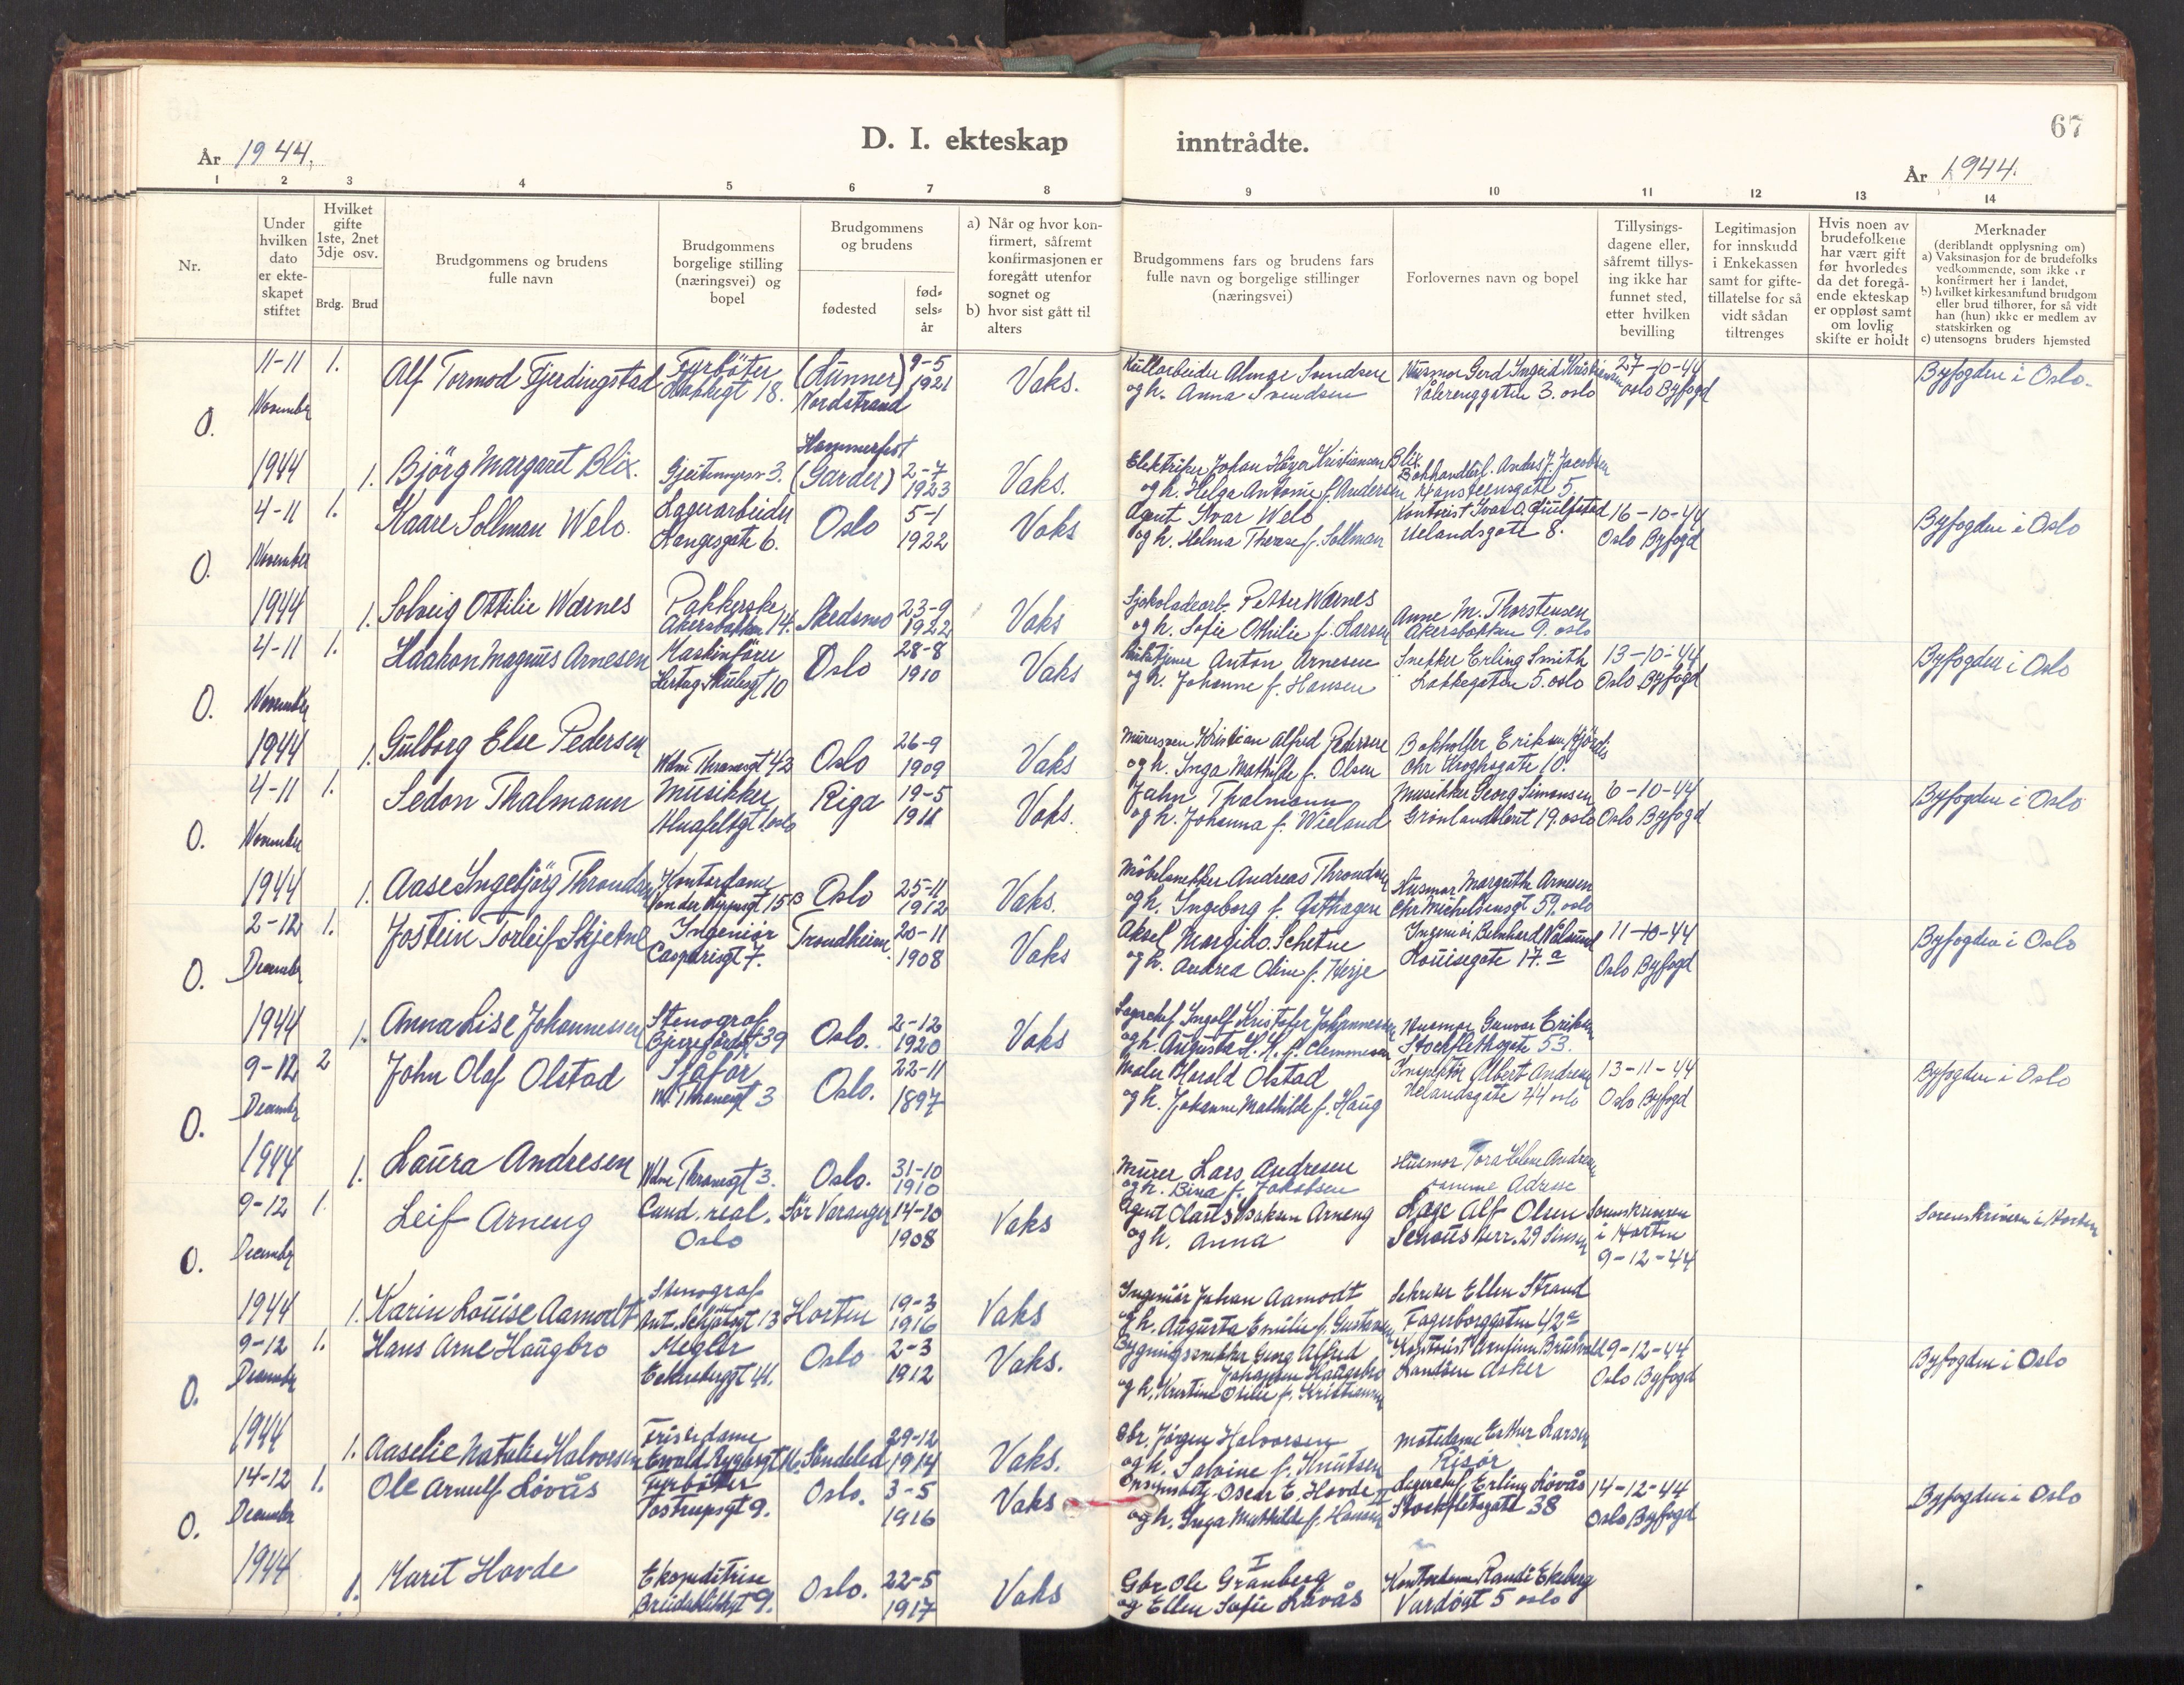 D. I. ekteskap inntrådte.
67
År 1944.
År 1944.
1 2 3 4 5 6 7 8 9 10 11 12 13 14
Nr.
Under hvilken dato er ekteskapet stiftet
Hvilket gifte 1ste, 2net 3dje osv.
Brdg. Brud
Brudgommens og brudens fulle navn
Brudgommens borgelige stilling (næringsvei) og bopel
Brudgommens og brudens
fødested
fødselsår
a) Når og hvor konfirmert, såfremt konfirmasjonen er foregått utenfor sognet og
b) hvor sist gått til alters
Brudgommens fars og brudens fars fulle navn og borgelige stillinger (næringsvei)
Forlovernes navn og bopel
Tillysingsdagene eller, såfremt tillysing ikke har funnet sted, etter hvilken bevilling
Legitimasjon for innskudd i Enkekassen samt for giftetillatelse for så vidt sådan tiltrenges
Hvis noen av brudefolkene har vært gift før hvorledes da det foregående ekteskap er oppløst samt om lovlig skifte er holdt
Merknader
(deriblandt opplysning om)
a) Vaksinasjon for de brudefolks vedkommende, som ikke er konfirmert her i landet,
b) hvilket kirkesamfund brudgom eller brud tilhører, for så vidt han (hun) ikke er medlem av statskirken og
c) utensogns bruders hjemsted
O. 11-11 November 1944
1. Alf Tormod Fjerdingstad Fyrbøter Markegt 18. (Lunner) Nordstrand 9-5 1921 Vaks.
og h. Anna Svendsen
Vålerenggaten 3. oslo
27-10-44 oslo Byfogd
Byfogden i Oslo.
1. Bjørg Margaret Blix. Hammerfest (Garder) 2-7 1923 Vaks.
Elektriker Johan Høyer Kristiansen Blix
og h. Helga Antonie f. Andersen
O. 4-11 November 1944
1. Kaare Sollman Welo. Lagerarbeider Langesgate 6. Oslo 5-1 1922 Vaks
Agent Ivar Welo
og h. Helma Therese f. Sollman
Uelandsgate 8.
16-10-44 Oslo Byfogd
Byfogden i Oslo
1. Solveig Ottilie Wærnes Pakkerske Akersbakken 14. Skedsmo 23-9 1922 Vaks
Sjokoladearb. Petter Wærnes
og h. Sofie Othilie f. Larsen
Anne M. Thorstensen
Akersbakken 9. oslo
O. 4-11 November 1944
1. Haakon Magnus Arnesen Maskinfører Hertug Skulesgt 10 Oslo 28-8 1910 Vaks
Anton Arnesen
og h. Johanne f. Hansen
Snekker Erling Smith
Lakkegaten 5. oslo
13-10-44 Oslo Byfogd
Byfogden i Oslo
1. Gulborg Else Pedersen Wdm Thranesgt 42 Oslo 26-9 1909 Vaks
Murersvenn Kristian Alfred Pedersen
og h. Inga Mathilde f. Olsen
Bokholder Eriksen Hjørdis
Chr Kroghsgate 10.
O. 4-11 November 1944
1. Sedon Thalmann Musikker oslo Riga 19-5 1911 Vaks.
Jahn Thalmann
og h. Johanna f. Wieland
Musikker Georg Simonsen
Grønlandsleret 19. oslo
6-10-44 Oslo Byfogd
Byfogden i Oslo
1. Aase Ingebjørg Throndsen Kontordame Oslo 25-11 1912 Vaks.
Møbelsnekker Andreas Throndsen
og h. Ingeborg f. Asthagen
Husmor Margrethe Arnesen
Chr Michelsensgt 59. oslo
O. 2-12 Decembr 1944
1. Jostein Torleif Skjetne Ingeniør Casparisgt 7. Trondheim. 20-11 1908 Vaks
Aksel Margido Schetne
og h. Andrea Oline f. Herje
Louisegate 17.a
11-10-44 Oslo Byfogd
Byfogden i Oslo
1. Anna Lise Johannessen Stenograf Bjerregårdsgt 39 Oslo. 2-12 1920 Vaks
Lagersjef Ingolf Kristofer Johannessen
og h. Augusta H. K. f. Clemmesen
Husmor Gunvor Eriksen
Stockflethsgate 53.
O. 9-12 Decembr 1944
2 John Olaf Olstad Sjåfør W. Thranesgt 3 Oslo. 22-11 1897
Maler Harald Olstad
og h. Johanne Mathilde f. Haug
Inspektør Albert Andresen
Uelandsgate 44 oslo
13-11-44 Oslo Byfogd
Byfogden i Oslo
1. Laura Andresen Wdm Thranesgt 3. Oslo. 31-10 1910
Murer Lars Andresen
og h. Bina f. Jakobsen
Husmor Tora Helene Andresen
samme Adresse
O. 9-12 Decembr 1944
1. Leif Arneng Cand. real. Oslo Sør Varanger 14-10 1908 Vaks
Agent Olaf Isaksen Arneng
og h. Anna
Lage Alf Olsen
Schous terr. 29 Sinsen
Sorenskriveren i Horten 9-12-44
Sorenskriveren i Horten
1. Karin Louise Aamodt Stenograf Ant. Schjøtsgt 13 Horten 19-3 1916 Vaks
Ingeniør Johan Aamodt
og h. Augusta Emilie f. Gustavsen
Ellen Strand
Fagerborggaten 42a
O. 9-12 Decembr 1944
1. Hans Arne Haugbro Megler Eckersbergsgt 41. Oslo 2-3 1912 Vaks.
Bygningssnekker Georg Alfred Johansen Haugbro
og h. Kristine Otilie f. Kristiansen
Landøen Asker
9-12-44 Oslo Byfogd
Byfogden i Oslo
1. Aaselie Natalie Halvorsen Friserdame Søndeled 29-12 1914 Vaks.
Gbr. Jørgen Halvorsen
og h. Salvine f. Knutsen
Motedame Esther Larsen
Risør
O. 14-12 Decembr 1944
1. Ole Arnulf Løvås Fyrbøter Tostrupsgt 9. Oslo. 3-5 1916 Vaks
Oscar E. Hovde II
og h. Inga Mathilde f. Hansen
Lagersjef Erling Løvås
Stockfletsgate 38
14-12-44 Oslo Byfogd
Byfogden i Oslo
1. Marit Hovde Ekspeditrise 9. Oslo. 22-5 1917 Vaks
I
Gbr Ole Granberg
og Ellen Sofie Løvås
Kontordame Randi Ekeberg
Vardøgt 5 oslo